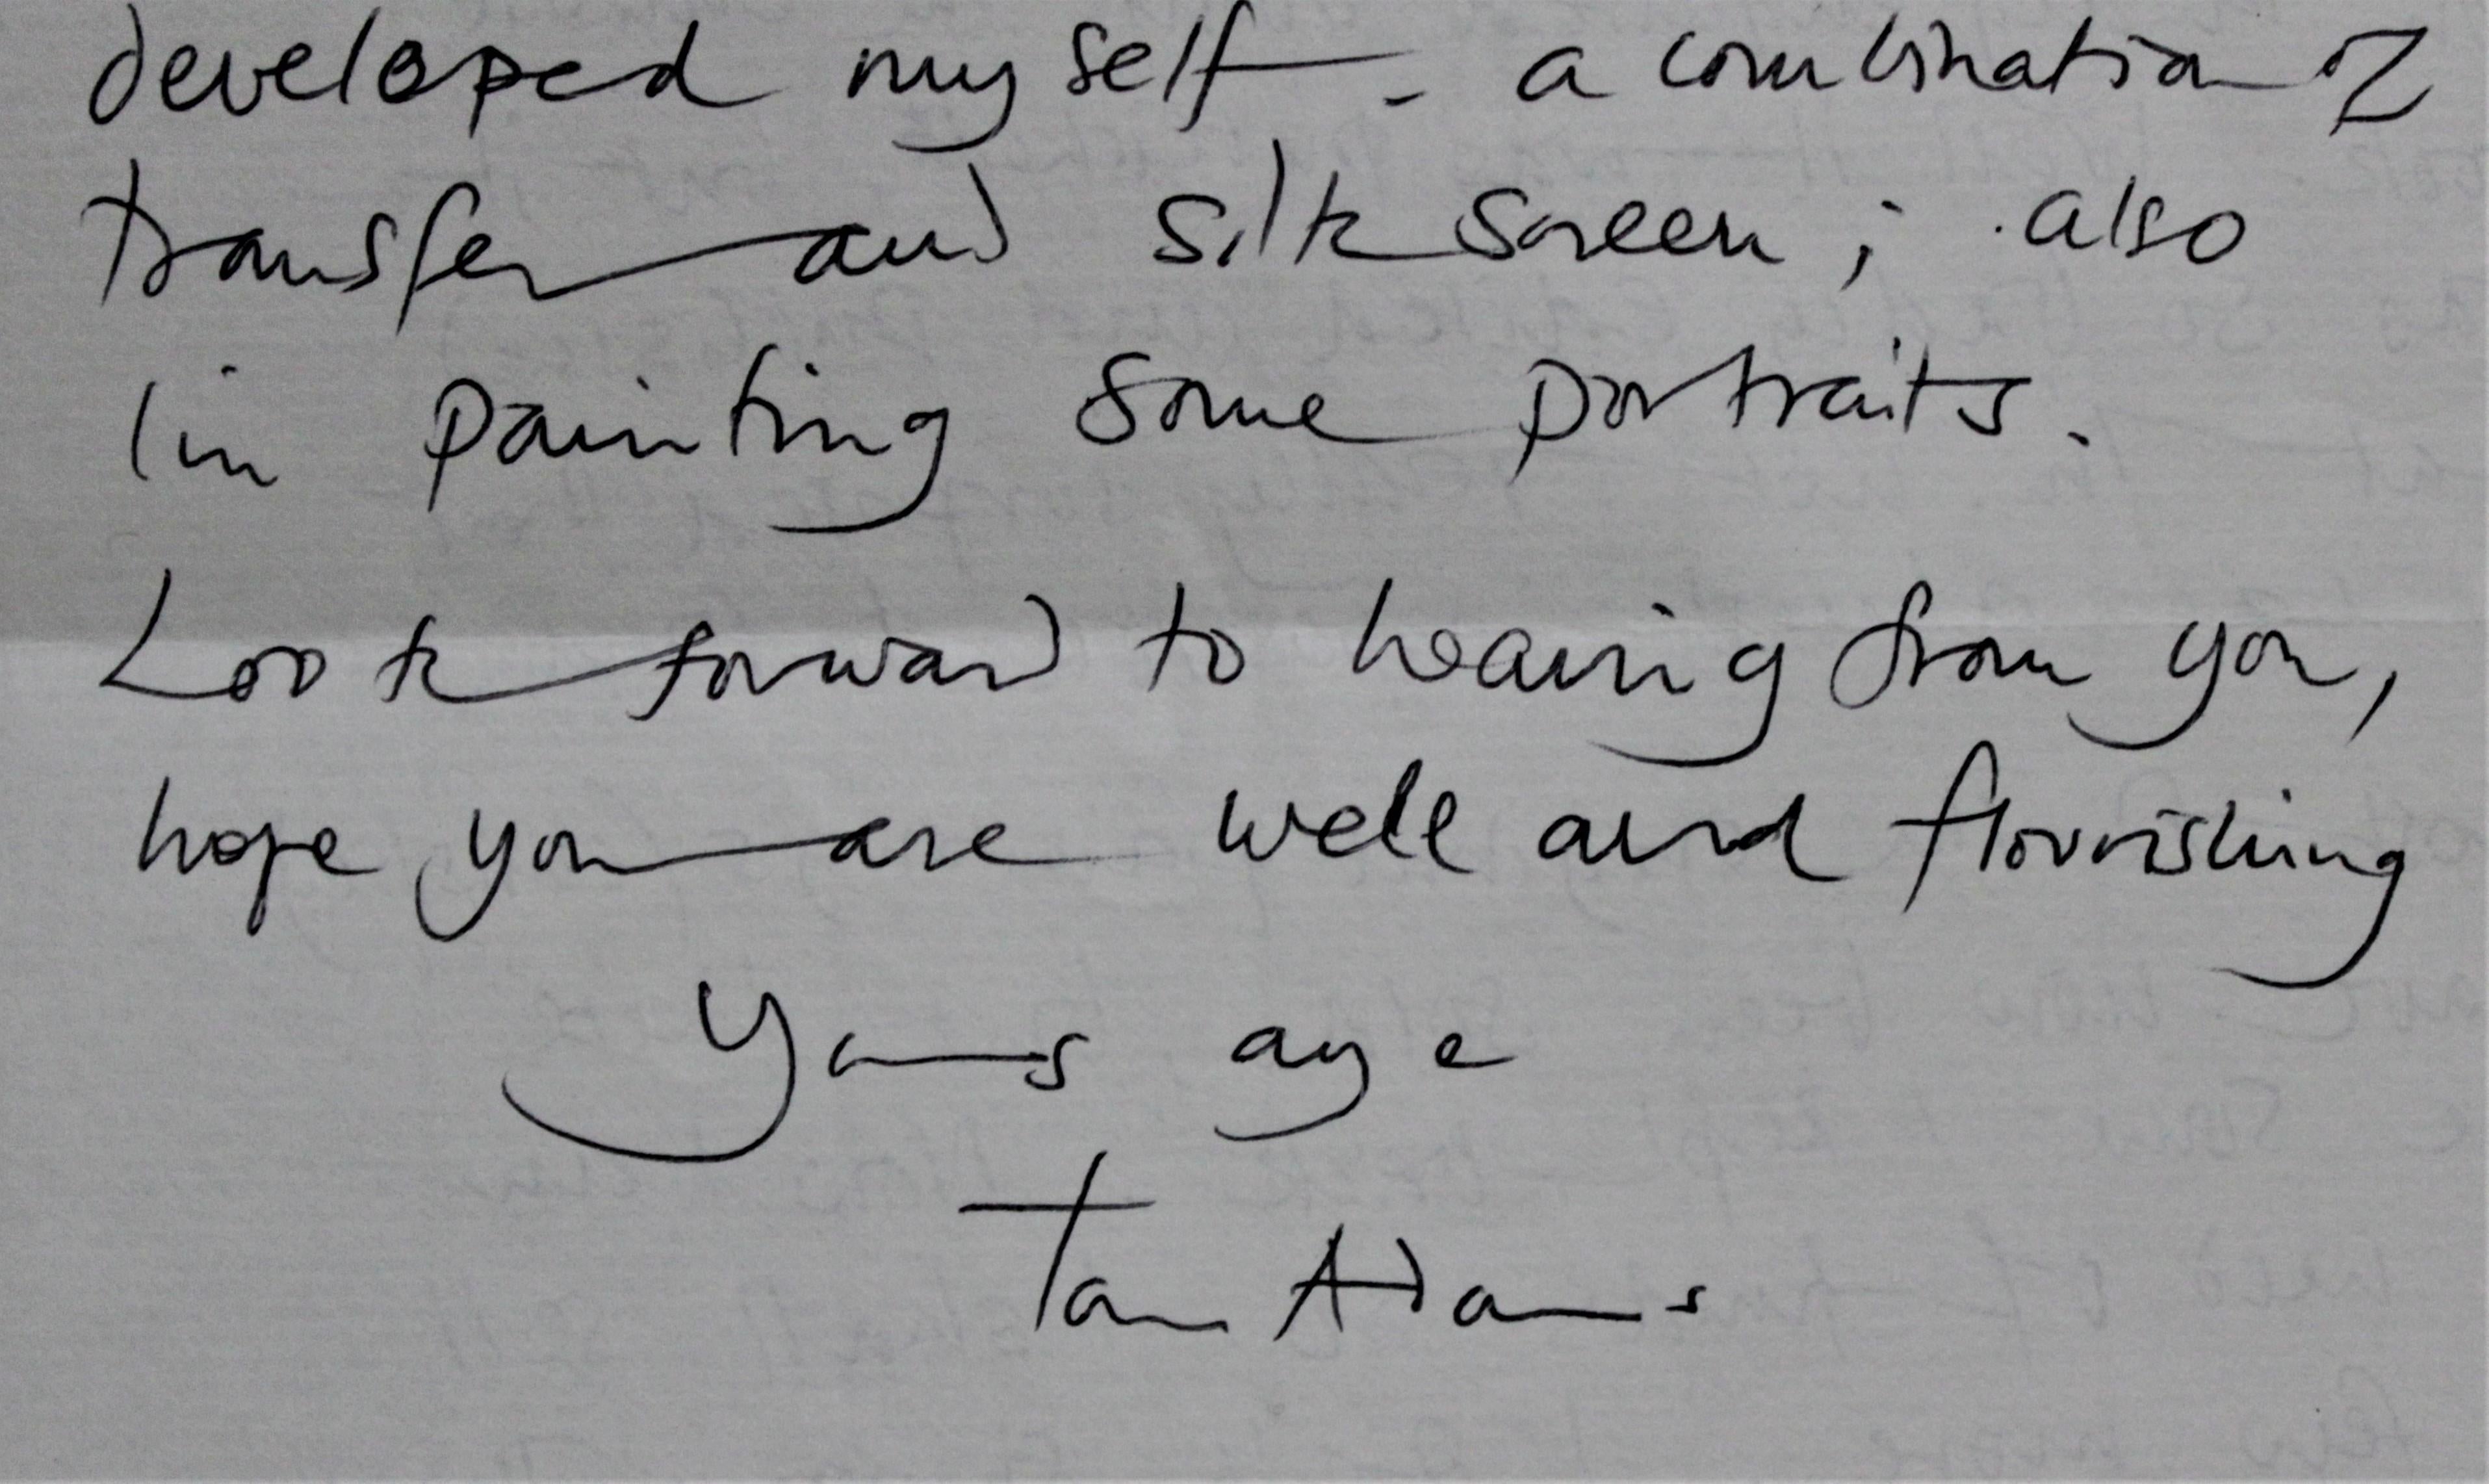 developed myself - a combination of
transfer and silk screen ; also
I'm painting some portraits.
Look forward to hearing from you,
hope you are well and flourishing
Yours aye
Tom Adams